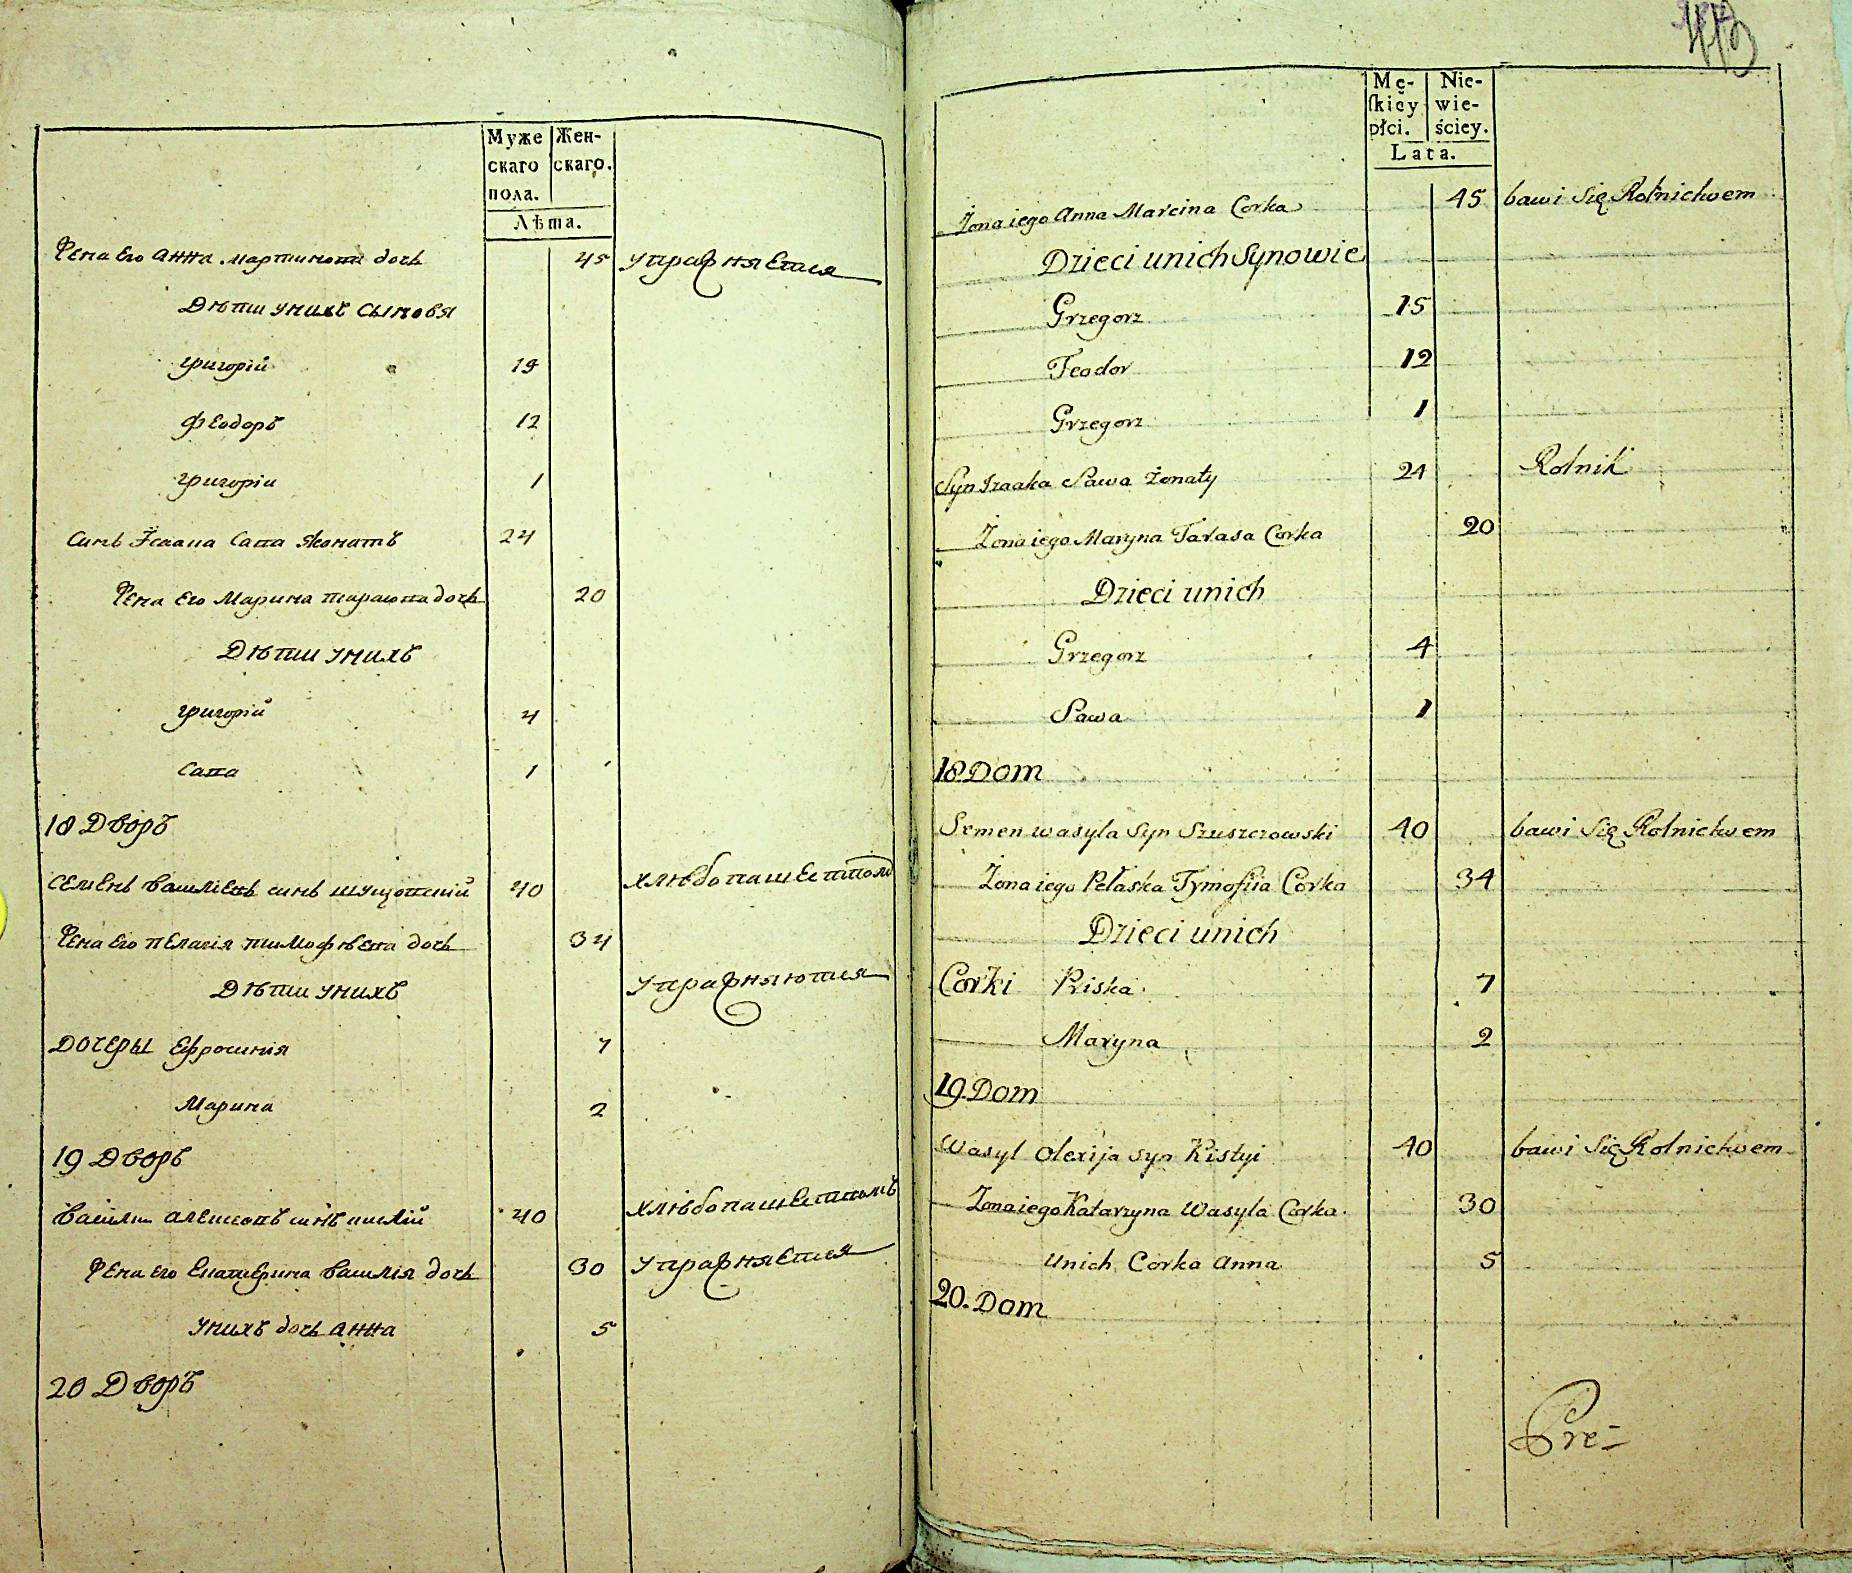 Муже
скаго
пола.
Жен-
скаго.
Лѣта.
Жена его Анна мартинова дочь 45 упражняется
Дѣти унихъ сыновя
григорій 15
Феодоръ 12
григорій 1
Синъ Ісаака Сава жонатъ 24
Жена его Марина тарасова дочь 20
Дѣти унихъ
григорій 4
Сава 1
18 Дворъ
Семенъ василіевъ синъ шущовскій 40 хлѣбопашеством
Жена его пелагія тимофѣева дочь 34
Дѣти унихъ упражняются
Дочеры Ефросинія 7
Марина 2
19 Дворъ
Василь алексеовъ синъ кислій 40 хлѣбопашествомъ
Жена его Екатерина василія дочь 30 упражняется
унихъ дочь Анна 5
20 Дворъ
Mę-
skiey
płci.
Nie-
wie-
ściey.
Lata.
Żona iego Anna Marcina Corka 45 bawi Się Rolnictwem
Dzieci unich Synowie
Grzegorz 15
Teodor 12
Grzegorz 1
Syn Izaaka Sawa żonaty 24 Rolnik
Żona iego Maryna Tarasa Corka 20
Dzieci unich
Grzegorz 4
Sawa 1
18. Dom
Semen wasyla Syn Szuszczowski 40 bawi Się Rolnictwem
Żona iego Pełaska Tymofiia Corka 34
Dzieci unich
Corki Priska 7
Maryna 2
19. Dom
Wasyl olexija syn Kisłyi 40 bawi Się Rolnictwem
Żona iego Katarzyna Wasyla Corka 30
unich Corka Anna 5
20. Dom
Pre-